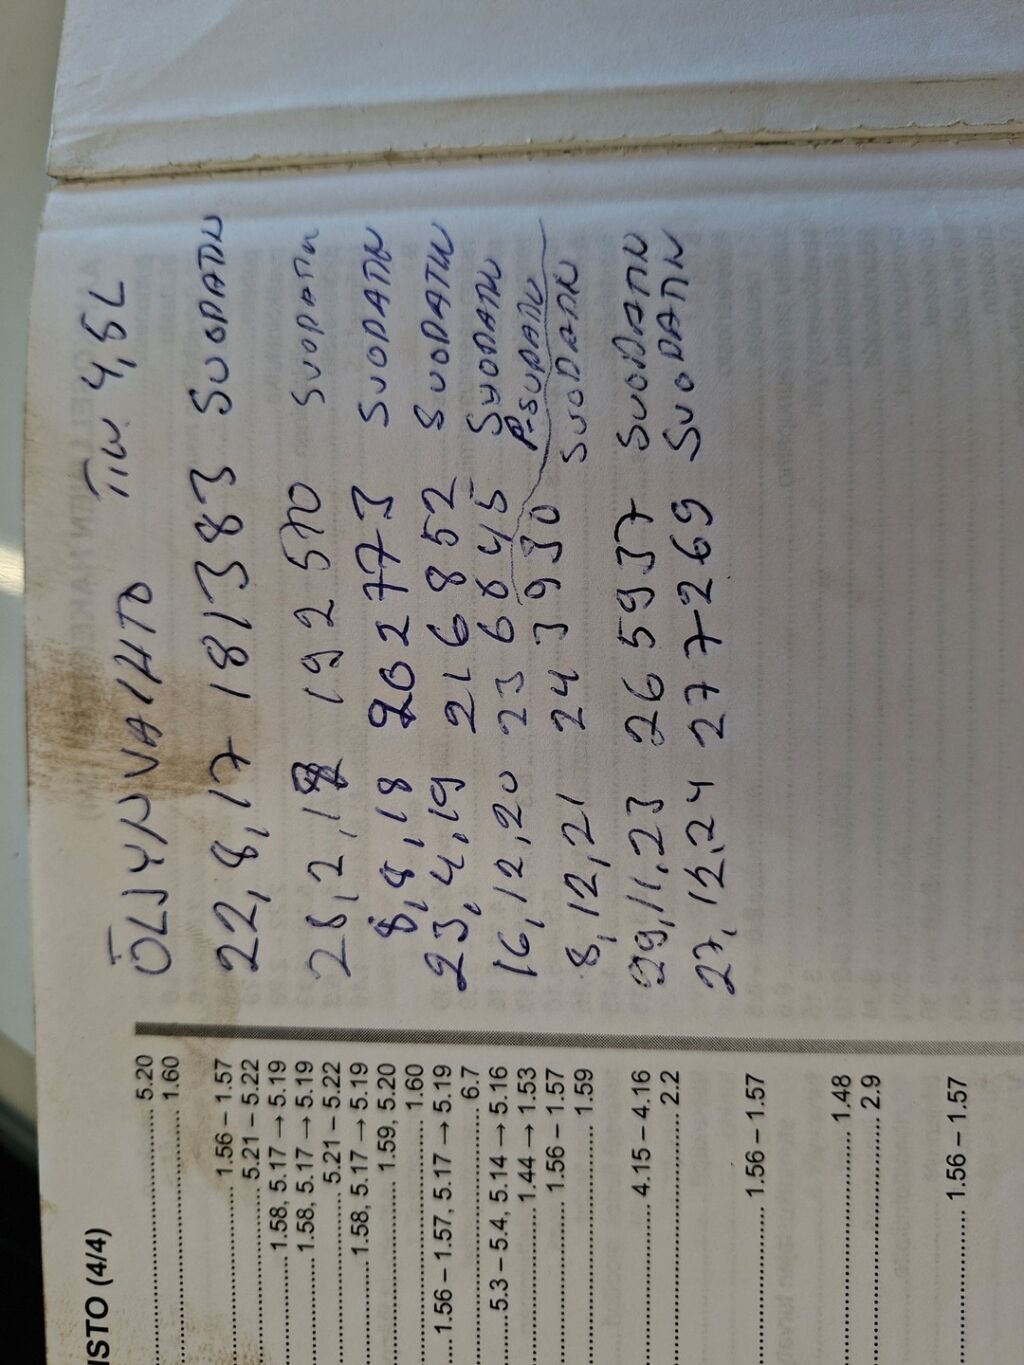 ISTO (4/4)
5.20
1.60
1.56 – 1.57
5.21 – 5.22
1.58, 5.17 → 5.19
1.58, 5.17 → 5.19
5.21 – 5.22
1.58, 5.17 → 5.19
1.59, 5.20
1.60
1.56 – 1.57, 5.17 → 5.19
6.7
5.3 – 5.4, 5.14 → 5.16
1.44 → 1.53
1.56 – 1.57
1.59
4.15 – 4.16
2.2
1.56 – 1.57
1.48
2.9
1.56 – 1.57
ÖLJYNVAIHTO TIN 4,5L
22,8,17 181383 SUODATIN
28,2,18 192570 SUODATIN
8,8,18 202773 SUODATIN
23,4,19 216852 SUODATIN
16,12,20 236645 SUODATIN
P-SUDATIN
8,12,21 243930 SUODATIN
29,11,23 265937 SUODATIN
27,12,24 277269 SUODATIN